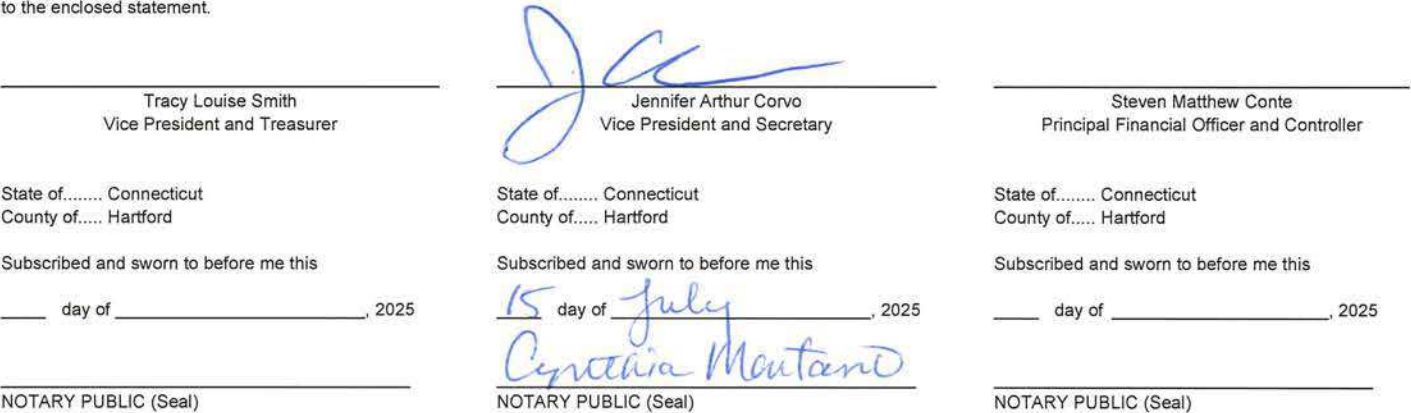 to the enclosed statement.
Tracy Louise Smith
Vice President and Treasurer
State of........ Connecticut
County of..... Hartford
Subscribed and sworn to before me this
____ day of ____________________, 2025
NOTARY PUBLIC (Seal)
Jennifer Arthur Corvo
Vice President and Secretary
State of........ Connecticut
County of..... Hartford
Subscribed and sworn to before me this
15 day of July, 2025
Cynthia Montano
NOTARY PUBLIC (Seal)
Steven Matthew Conte
Principal Financial Officer and Controller
State of........ Connecticut
County of..... Hartford
Subscribed and sworn to before me this
____ day of ____________________, 2025
NOTARY PUBLIC (Seal)